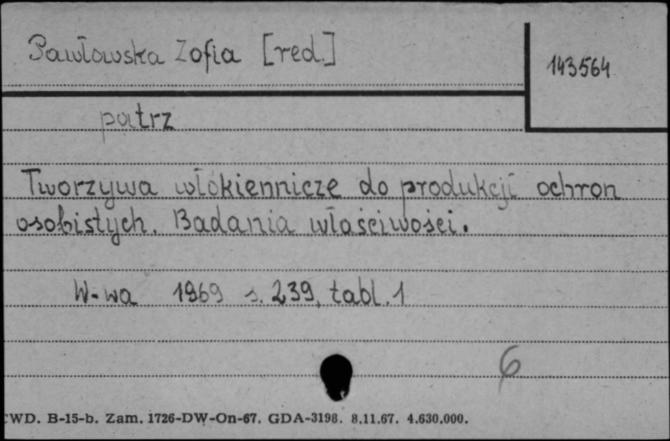 Pawłowska Zofia [red.]
143564
patrz
Tworzywa włókiennicze do produkcji ochron
osobistych. Badania właściwości.
W-wa 1969 s. 239, tabl. 1
6
WD. B-15-b. Zam. 1726-DW-On-67. GDA-3198. 8.11.67. 4.630.000.